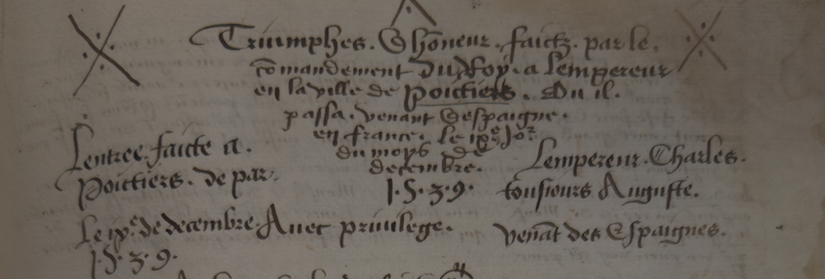 Triumphes. d'honeur. faictz. par le.
cōmandement du Roy. a lempereur
en la ville de Poictiers. Ou il.
passa. venant despaigne.
en france. le ixe Jor
du moys de
decembre.
1.5.3.9.
Lentree faicte a.
Poictiers. de par.
Lempereur. Charles.
tousiours Auguste.
Le ixe. de decembre. Avec privilege.
venāt des Espaignes.
1.5.3.9.